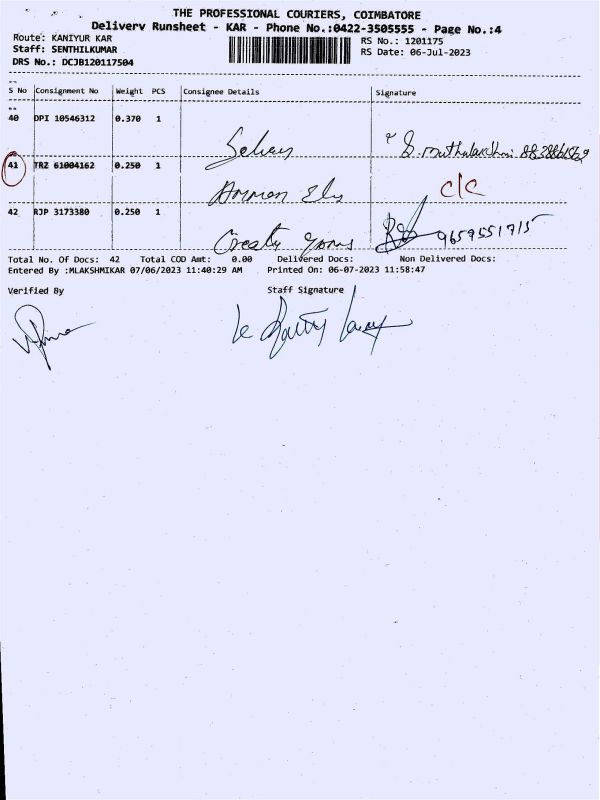 THE PROFESSIONAL COURIERS, COIMBATORE
Delivery Runsheet - KAR - Phone No.:0422-3505555 - Page No.:4
Route: KANIYUR KAR RS No.: 1201175
Staff: SENTHILKUMAR RS Date: 06-Jul-2023
DRS No.: DCJB120117504
S No Consignment No Weight PCS Consignee Details Signature
40 DPI 10546312 0.370 1
Selvan
41 TRZ 61004162 0.250 1
C/C
42 RJP 3173380 0.250 1
9659551715
Total No. Of Docs: 42 Total COD Amt: 0.00 Delivered Docs: Non Delivered Docs:
Entered By :MLAKSHMIKAR 07/06/2023 11:40:29 AM Printed On: 06-07-2023 11:58:47
Verified By Staff Signature